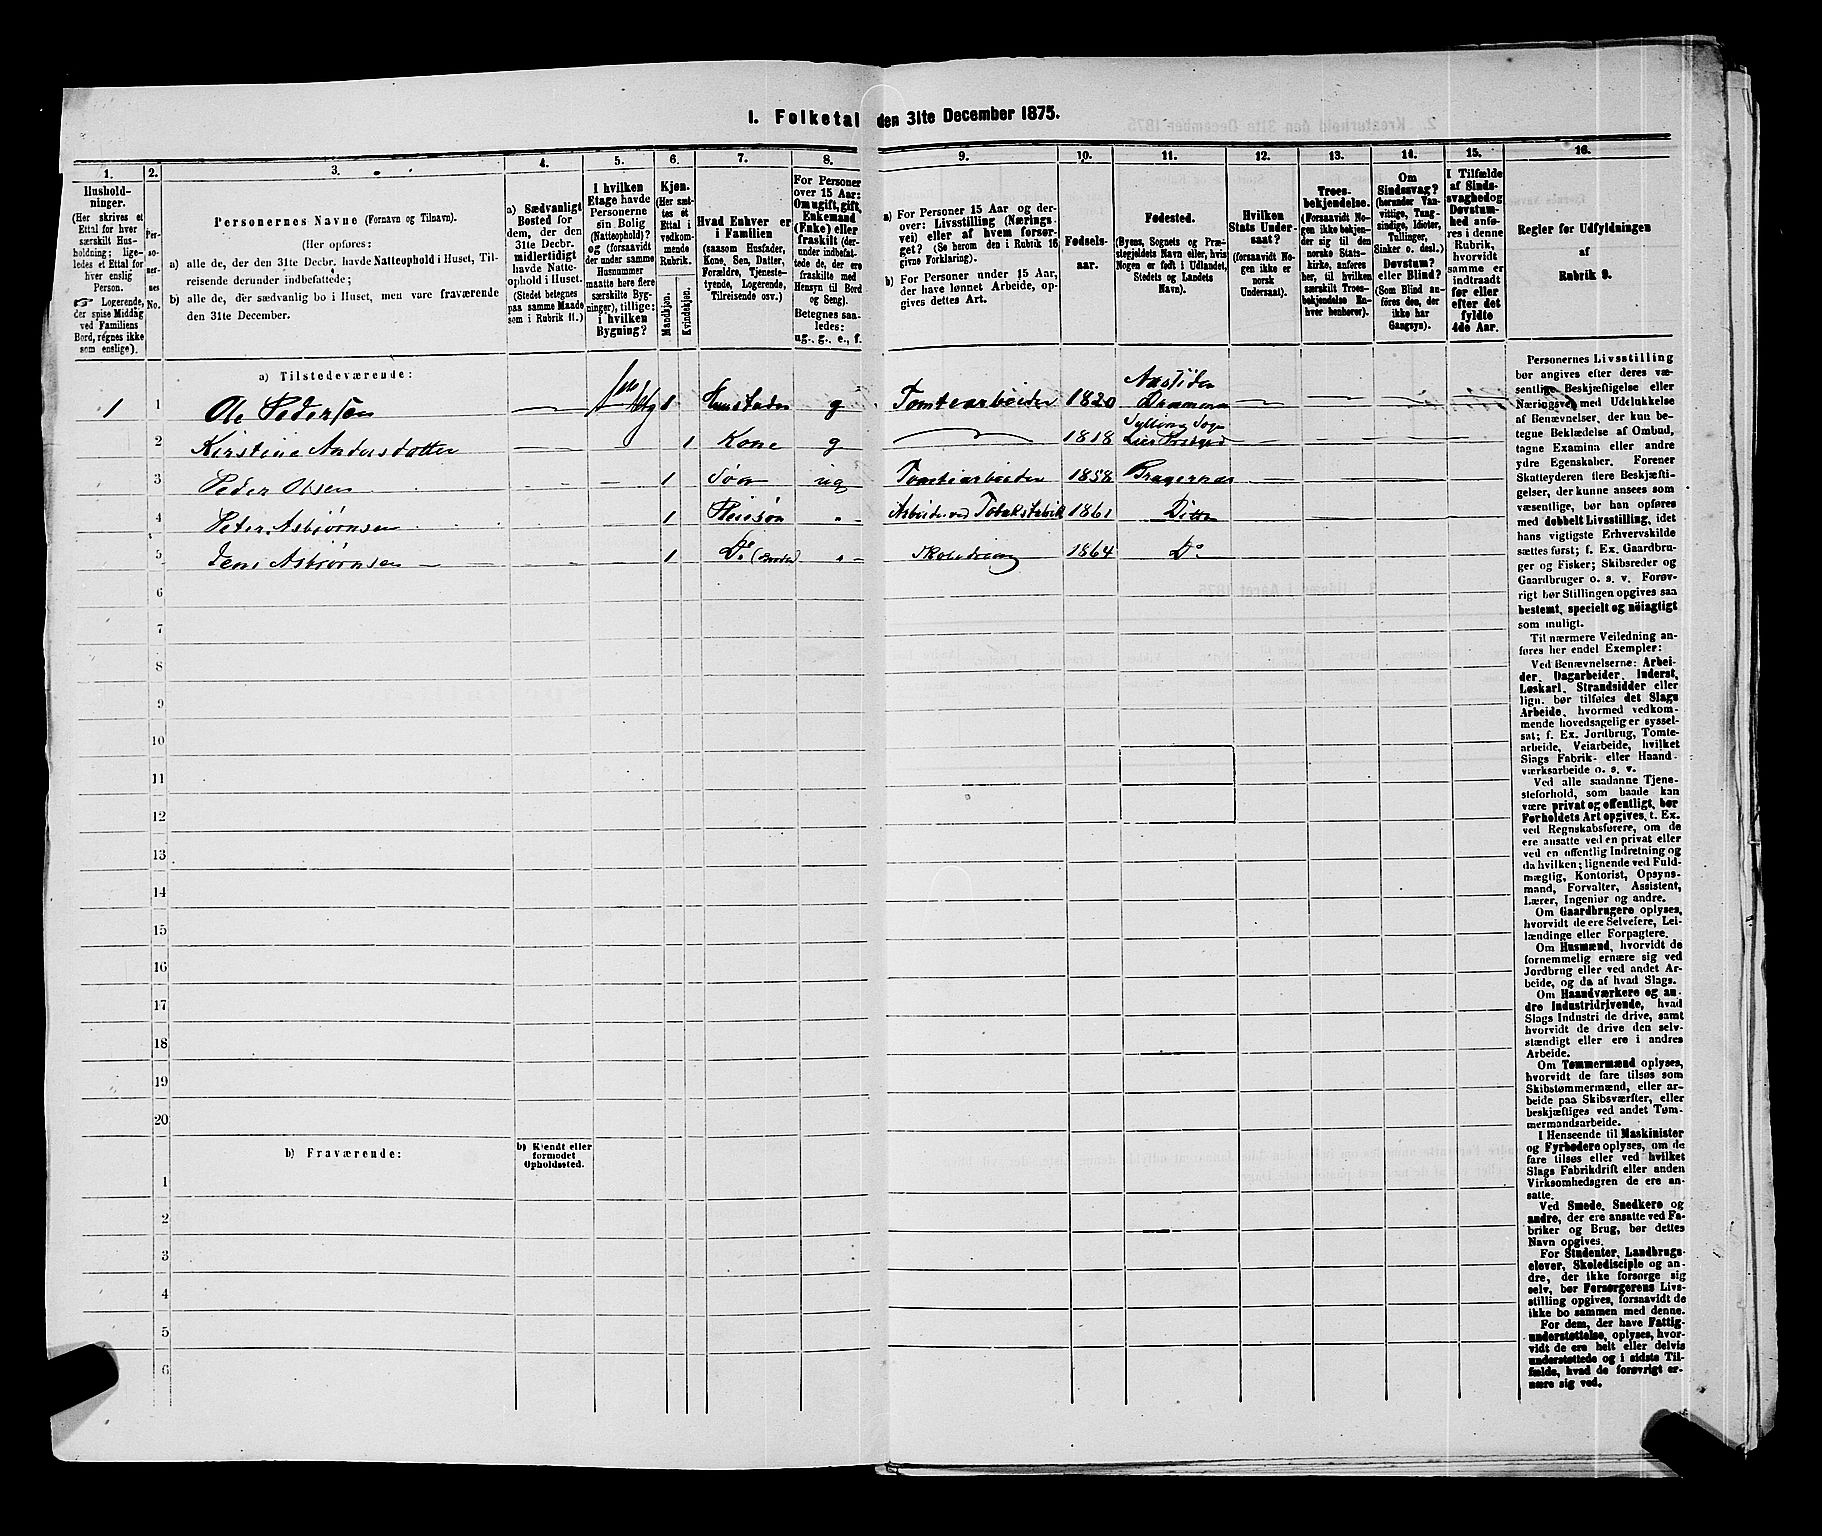 1. Folketal den 31te December 1875.
1. 2. 3. 4. 5. 6. 7. 8. 9. 10. 11. 12. 13. 14. 15. 16.
Hushold-
ninger.
(Her skrives et
Ettal for hver
særskilt Hus-
holdning; lige-
ledes et Ettal for
hver enslig
Person.
☞ Logerende,
der spise Middag
ved Familiens
Bord, regnes ikke
som enslige).
Per-
so-
ner-
nes
No.
Personernes Navne (Fornavn og Tilnavn).
(Her opføres:
a) alle de, der den 31te Decbr. havde Natteophold i Huset, Til-
reisende derunder indbefattede;
b) alle de, der sædvanlig bo i Huset, men vare fraværende
den 31te December.
a) Sædvanligt
Bosted for
dem, der den
31te Decbr.
midlertidigt
havde Natte-
ophold i Huset.
(Stedet betegnes
paa samme Maade
som i Rubrik 11.)
I hvilken
Etage havde
Personerne
sin Bolig
(Natteophold)?
og (forsaavidt
der under samme
Husnummer
maatte høre flere
særskilte Byg-
ninger), tillige:
i hvilken
Bygning?
Kjøn.
(Her sæt-
tes et
Ettal i
vedkom-
mende
Rubrik.
Mandkjøn.
Kvindekjøn.
Hvad Enhver er
i Familien
(saasom Husfader,
Kone, Søn, Datter,
Forældre, Tjeneste-
tyende, Logerende,
Tilreisende osv.)
For Personer
over 15 Aar:
Om ugift, gift,
Enkemand
(Enke) eller
fraskilt (der-
under indbefat-
tede de, der ere
fraskilte med
Hensyn til Bord
og Seng).
Betegnes saa-
ledes:
ug., g., e., f.
a) For Personer 15 Aar og der-
over: Livsstilling (Nærings-
vei) eller af hvem forsør-
get? (Se herom den i Rubrik 16
givne Forklaring).
b) For Personer under 15 Aar,
der have lønnet Arbeide, op-
gives dettes Art.
Fødsels-
aar.
Fødested.
(Byens, Sognets og Præ-
stegjeldets Navn eller, hvis
Nogen er født i Udlandet,
Stedets og Landets
Navn).
Hvilken
Stats Under-
saat?
(forsaavidt No-
gen ikke er
norsk
Undersaat).
Troes-
bekjendelse.
(Forsaavidt No-
gen ikke bekjen-
der sig til den
norske Stats-
kirke, anføres
her, til hvilken
særskilt Troes-
bekjendelse En-
hver henhører).
Om
Sindssvag?
(herunder Van-
vittige, Tung-
sindige, Idioter,
Tullinger,
Sinker o. desl.)
Døvstum?
eller Blind?
(Som Blind an-
føres den, der
ikke har
Gangsyn).
I Tilfælde
af Sinds-
svaghed og
Døvstum-
hed anfø-
res i denne
Rubrik,
hvorvidt
samme er
indtraadt
før eller
efter det
fyldte
4de Aar.
Regler for Udfyldningen
af
Rubrik 9.
a) Tilstedeværende:
1 1 Ole Pedersen 1 g Tomtearbeider 1820 Drammen
2 Kirstine Andersdatter 1 Kone g 1818
3 Peder Olsen 1 Søn ug Tomtearbeider 1858 Bragernæs
4 Peter Asbjørnsen 1 Pleiesøn Arbeider ved Tobaksfabrik 1861 Ditto
5 Jens Asbjørnsen 1 Do 1864 Do
6
7
8
9
10
11
12
13
14
15
16
17
18
19
20
b) Fraværende:
b) Kjendt eller
formodet
Opholdssted.
1
2
3
4
5
6
Personernes Livsstilling
bør angives efter deres væ-
sentlige Beskjæftigelse eller
Næringsvei med Udelukkelse
af Benævnelser, der kun be-
tegne Beklædelse af Ombud,
tagne Examina eller andre
ydre Egenskaber. Forener
Skatteyderen flere Beskjæfti-
gelser, der kunne ansees som
væsentlige, bør han opføres
med dobbelt Livsstilling, idet
hans vigtigste Erhvervskilde
sættes først; f. Ex. Gaardbru-
ger og Fisker; Skibsreder og
Gaardbruger o. s. v. Forøv-
rigt bør Stillingen opgives saa
bestemt, specielt og nøiagtigt
som muligt.
Til nærmere Veiledning an-
føres her endel Exempler:
Ved Benævnelserne: Arbei-
der, Dagarbeider, Inderst,
Løskarl, Strandsidder eller
lign. bør tilføies det Slags
Arbeide, hvormed vedkom-
mende hovedsagelig er syssel-
sat; f. Ex. Jordbrug, Tomte-
arbeide, Veiarbeide, hvilket
Slags Fabrik- eller Haand-
værksarbeide o. s. v.
Ved alle saadanne Tjene-
steforhold, som baade kan
være privat og offentligt, bør
Forholdets Art opgives, t. Ex.
ved Regnskabsførere, om de
ere ansatte ved en privat eller
ved en offentlig Indretning og
da hvilken; lignende ved Fuld-
mægtig, Kontorist, Opsyns-
mand, Forvalter, Assistent,
Lærer, Ingeniør og andre.
Om Gaardbrugere oplyses,
hvorvidt de ere Selveiere, Lei-
lændinge eller Forpagtere.
Om Husmænd, hvorvidt de
fornemmelig ernære sig ved
Jordbrug eller ved andet Ar-
beide, og da af hvad Slags.
Om Haandværkere og an-
dre Industridrivende, hvad
Slags Industri de drive, samt
hvorvidt de drive den selv-
stændigt eller ere i andres
Arbeide.
Om Tømmermænd oplyses,
hvorvidt de fare tilsøs som
Skibstømmermænd, eller ar-
beide paa Skibsværfter, eller
beskjæftiges ved andet Tøm-
mermandsarbeide.
I Henseende til Maskinister
og Fyrbødere oplyses, om de
fare tilsøs eller ved hvilket
Slags Fabrikdrift eller anden
Virksomhedsgren de ere an-
satte.
Ved Smede, Snedkere og
andre, der ere ansatte ved Fa-
briker og Brug, bør dettes
Navn opgives.
For Studenter, Landbrugs-
elever, Skoledisciple og an-
dre, der ikke forsørge sig
selv, bør Forsørgerens Livs-
stilling opgives, forsaavidt de
ikke bo sammen med denne.
For dem, der have Fattig-
understøttelse, oplyses, hvor-
vidt de ere helt eller delvis
understøttede og i sidste Til-
fælde, hvad de forøvrigt er-
nære sig ved.